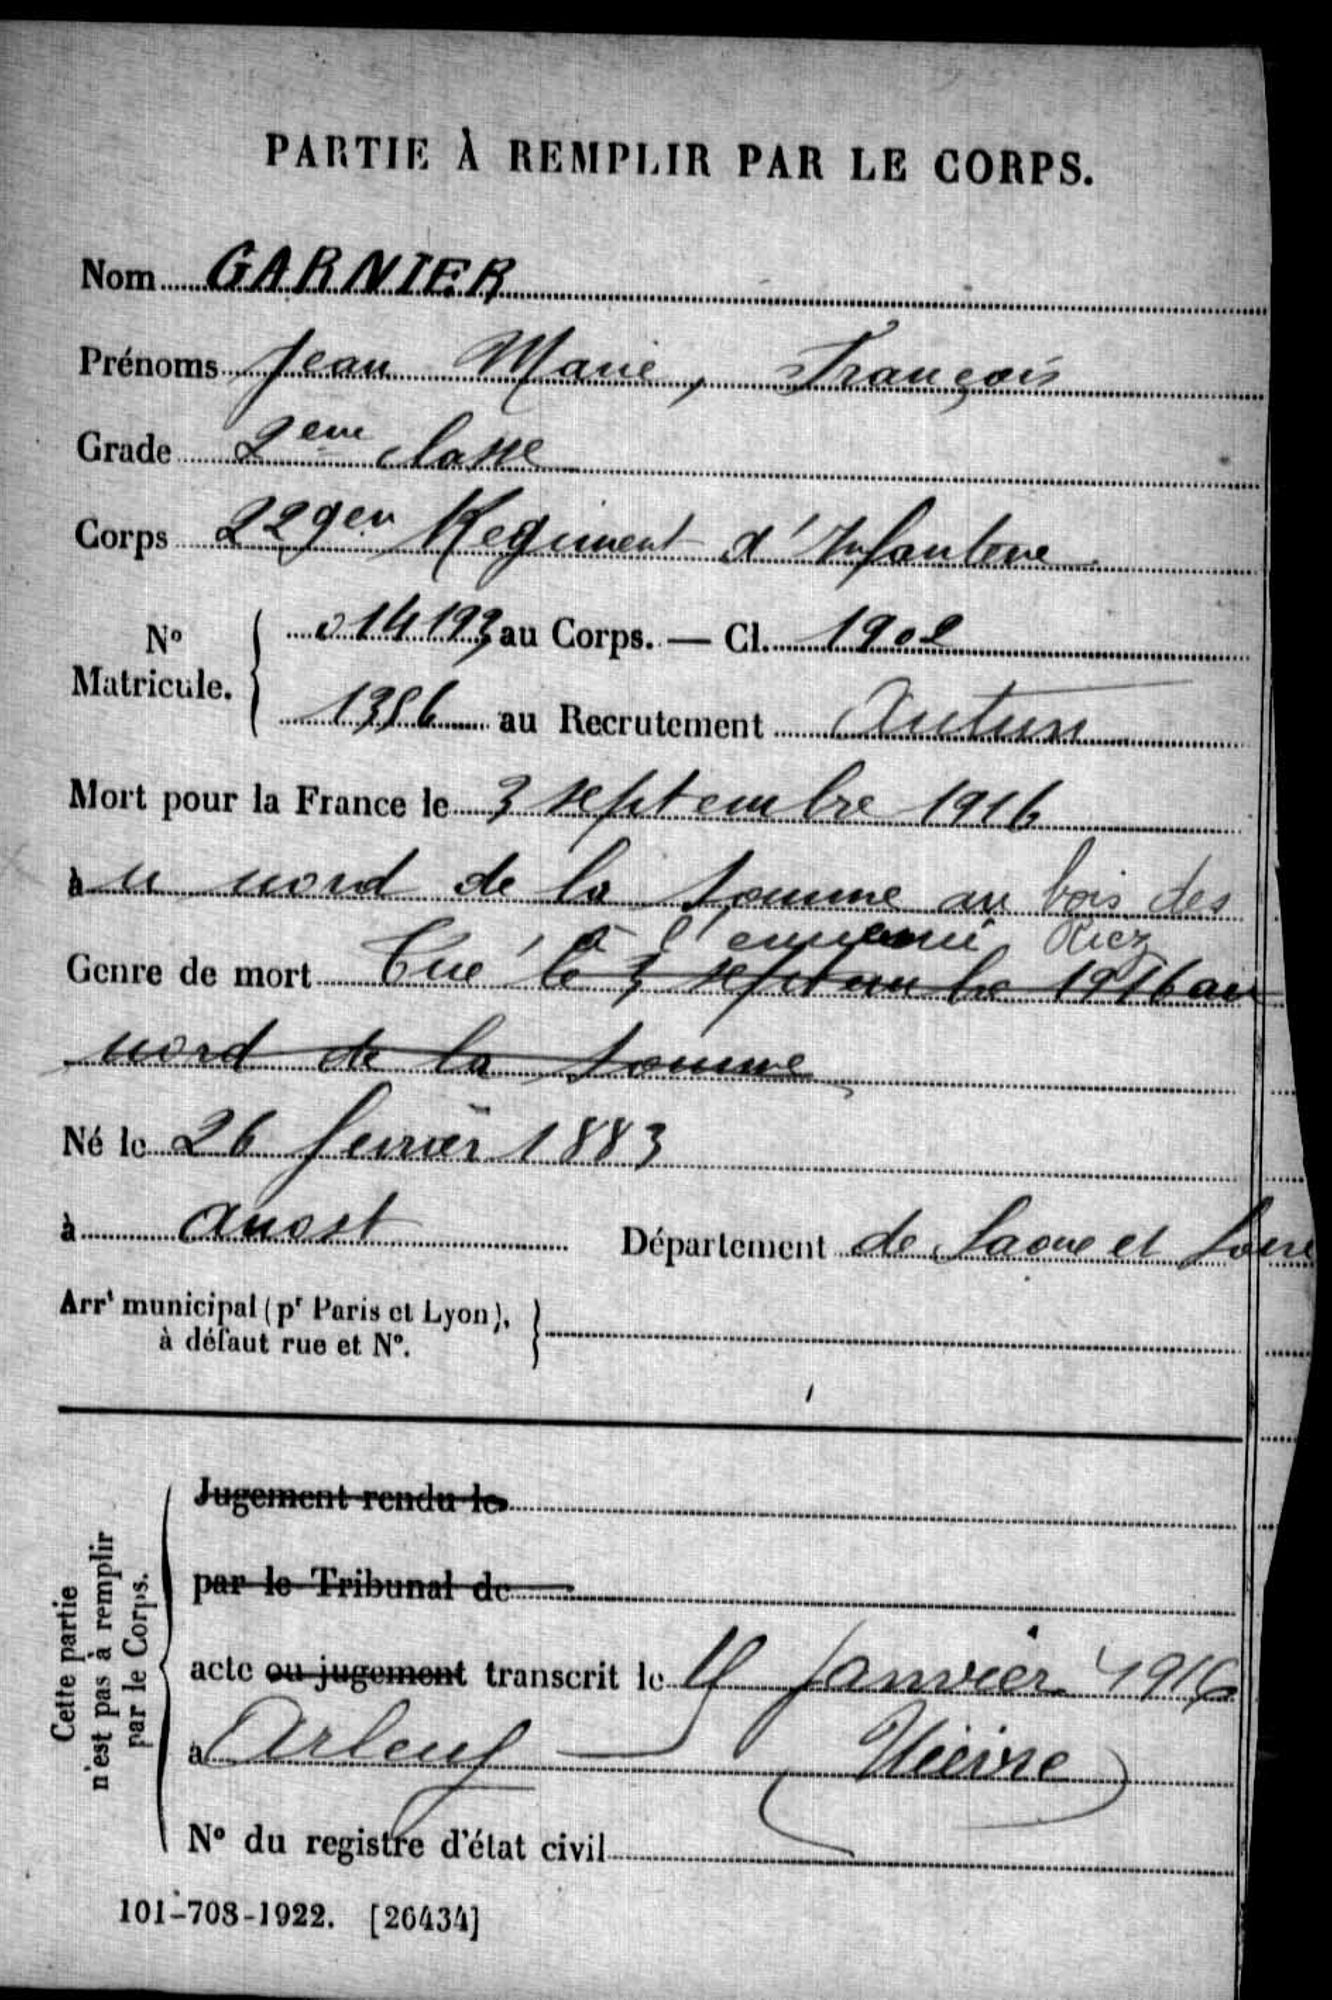 PARTIE À REMPLIR PAR LE CORPS.
Nom GARNIER
Prénoms Jean Marie, François
Grade 2eme classe
Corps 229em Regiment d'Infanterie
No Matricule. 014193 au Corps. — Cl. 1902
1386 au Recrutement Autun
Mort pour la France le 3 septembre 1916
au nord de la Somme au bois des
Riez
à l'ennemi
Genre de mort Tué le 3 septembre 1916 au
nord de la Somme
Né le 26 février 1883
à Anost Département de Saone et Loire
Arrt municipal (pr Paris et Lyon),
à défaut rue et No.
Cette partie
n'est pas à remplir
par le Corps.
Jugement rendu le
par le Tribunal de
acte ou jugement transcrit le Janvier
à Arleuf Nièvre
No du registre d'état civil
101-708-1922. [26434]